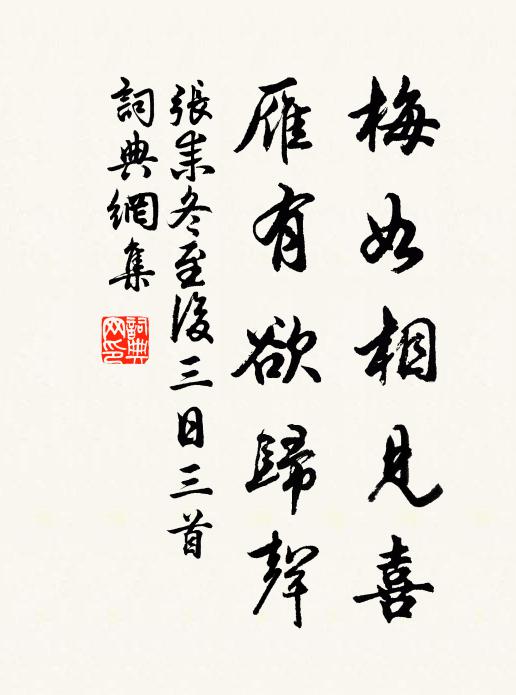 梅如相見喜
雁有欲歸聲
張耒冬至後三日三首
詞典網集
詞典網印